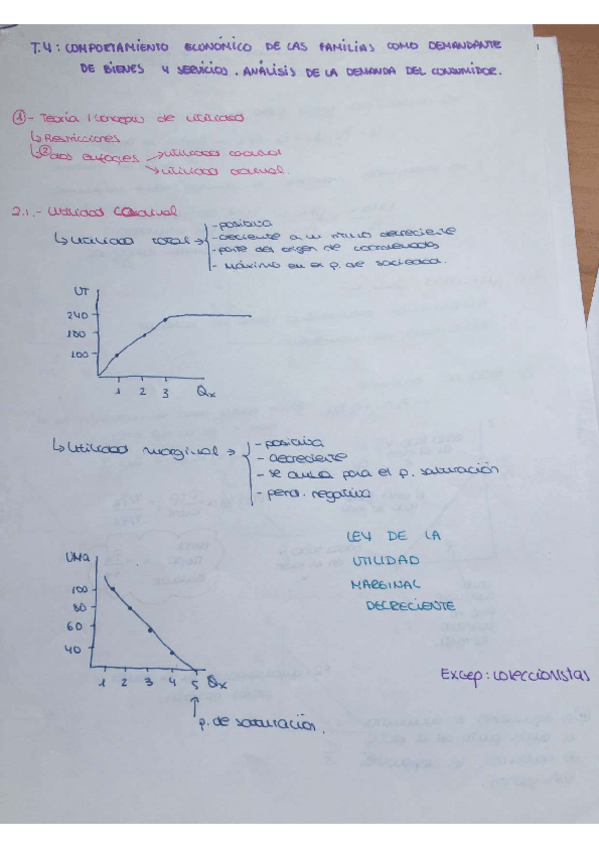 T.4: COMPORTAMIENTO ECONÓMICO DE LAS FAMILIAS COMO DEMANDANTE
DE BIENES Y SERVICIOS. ANÁLISIS DE LA DEMANDA DEL CONSUMIDOR.
1
①- Teoría / Concepto de utilidad
↳ Restricciones
↳ ② dos enfoques → utilidad cardinal
→ utilidad ordinal.
2.1.- Utilidad Cardinal
↳ Utilidad total →
- positiva
- creciente a un ritmo decreciente
- parte del origen de coordenadas
- Máximo en el p. de saciedad.
UT
240
180
100
1 2 3 Qx
↳ Utilidad marginal →
- positiva
- decreciente
- se anula para el p. saturación
- pend. negativa
LEY DE LA
UTILIDAD
MARGINAL
DECRECIENTE
UMa
100
80
60
40
1 2 3 4 5 Qx
p. de saturación.
Excep: coleccionistas